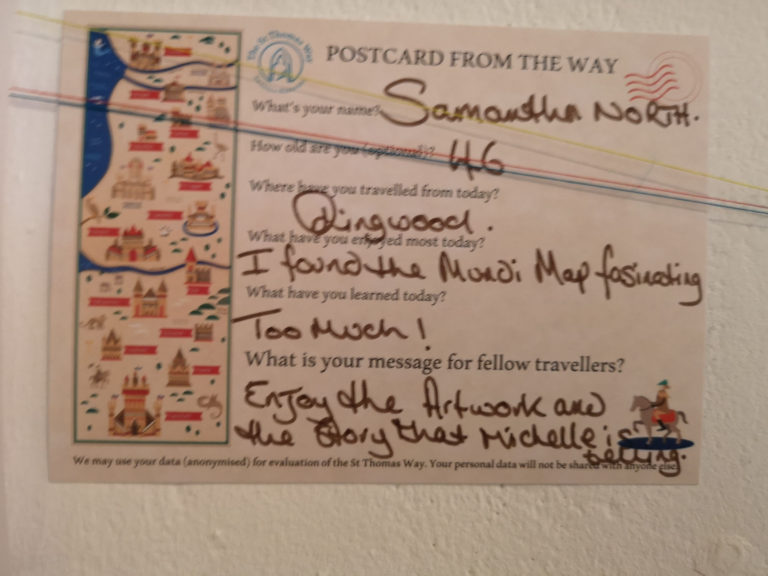 The St Thomas Way
POSTCARD FROM THE WAY
What's your name? Samantha NORTH.
How old are you (optional)? 46
Where have you travelled from today?
Ringwood.
What have you enjoyed most today?
I found the Mundi Map fasinating
What have you learned today?
Too Much!
What is your message for fellow travellers?
Enjoy the Artwork and
the Story that Michelle is
telling.
We may use your data (anonymised) for evaluation of the St Thomas Way. Your personal data will not be shared with anyone else.